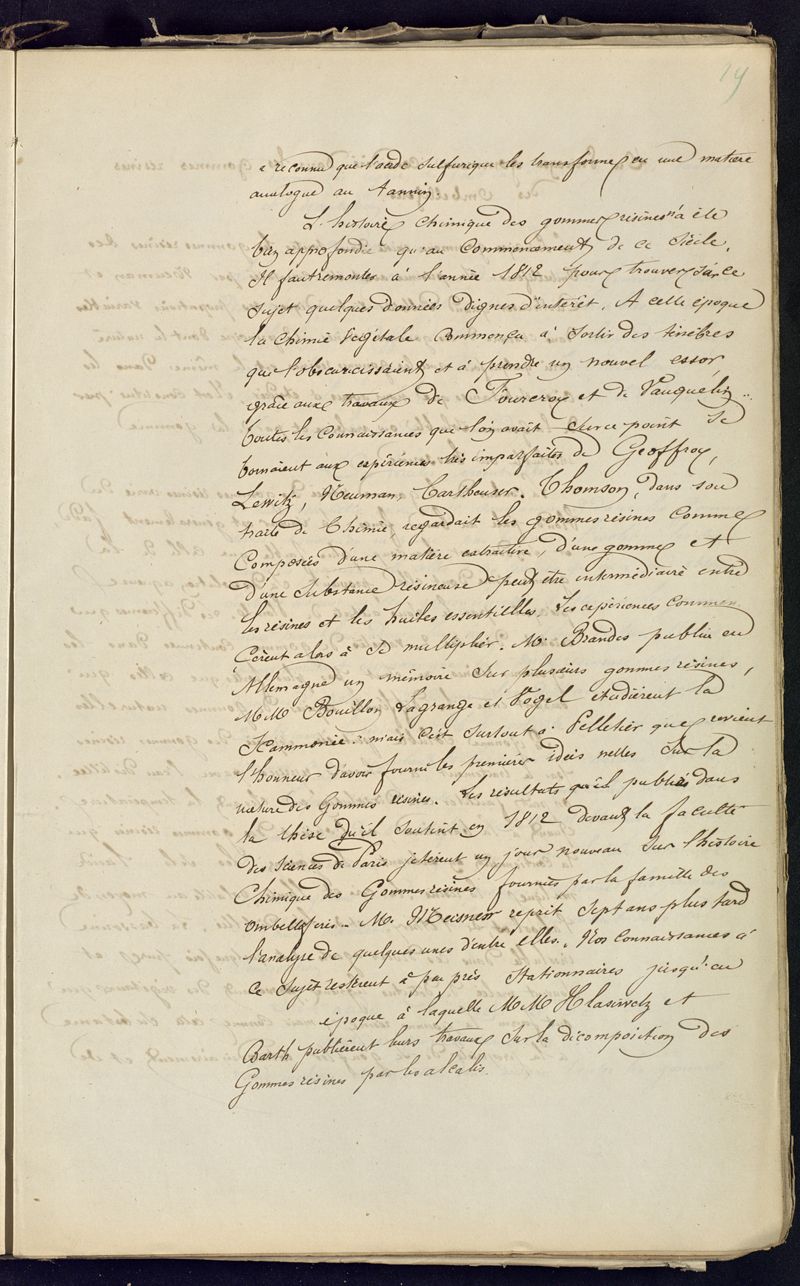 19
a reconnu que l'acide sulfurique les transforme en une matière
analogue au tannin.
L'histoire Chimique des gommes résines n'a été
bien approfondie qu'au Commencement de ce siècle.
Il faut remonter à l'année 1812 pour trouver sur ce
sujet quelques données dignes d'intérêt. A cette époque
la Chimie Végétale Commença à sortir des ténèbres
que l'obscurcissaient et à prendre un nouvel essor,
grâce aux travaux de Fourcroy et de Vauquelin.
Toutes les Connaissances que l'on avait sur ce point se
bornaient aux expériences très imparfaites de Geoffroy,
Lewitz, Neuman, Cartheuser. Thomson, dans son
traité de Chimie, regardait les gommes résines Comme
Composées d'une matière extractive, d'une gomme et
d'une substance résineuse peut être intermédiaire entre
les résines et les huiles essentielles. Les expériences Commen
cèrent alors à se multiplier. Mr Brandes publia en
Allemagne un mémoire sur plusieurs gommes résines,
M.M Bouillon Lagrange et Vogel étudièrent la
Scammonée : mais c'est surtout à Pelletier que revient
l'honneur d'avoir fourni les premières idées nettes sur la
nature des Gommes résines. Les résultats qu'il publia dans
la thèse qu'il soutint en 1812 devant la faculté
des sciences de Paris jetèrent un jour nouveau sur l'histoire
Chimique des Gommes résines fournies par la famille des
Ombellifères. Mr Meisner reprit sept ans plus tard
l'analyse de quelques unes d'entre elles. Nos Connaissances à
ce sujet restèrent à peu près stationnaires jusqu'au
époque à laquelle M.M Hlasiwetz et
Barth publièrent leurs travaux sur la décomposition des
Gommes résines par les alcalis.